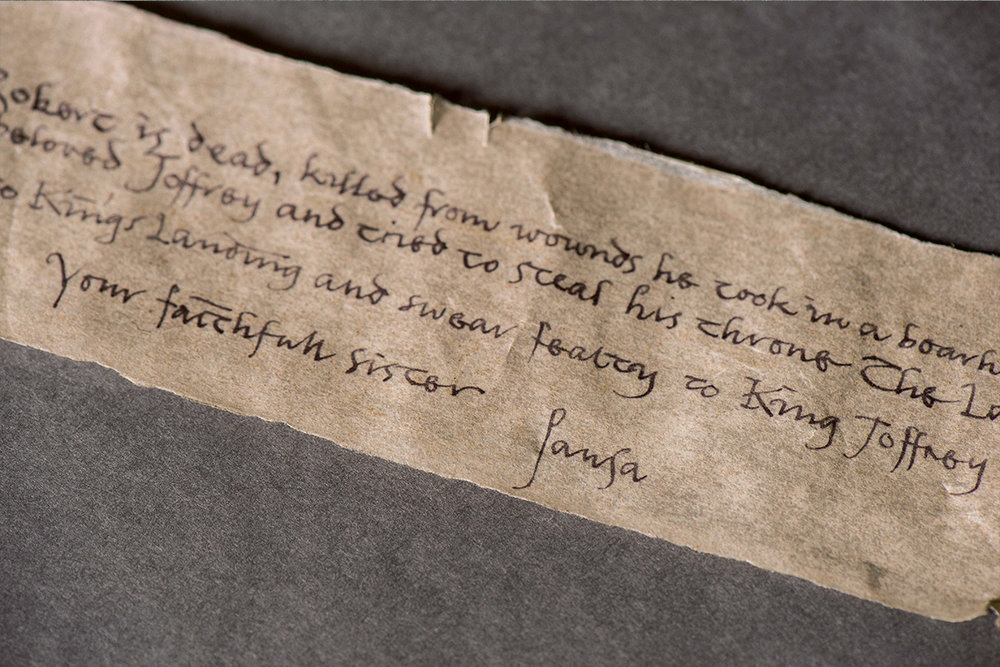 Robert is dead, killed from wounds he took in a boarh
beloved Joffrey and tried to steal his throne The La
to Kings Landing and swear fealty to King Joffrey
Your faithfull sister
Sansa